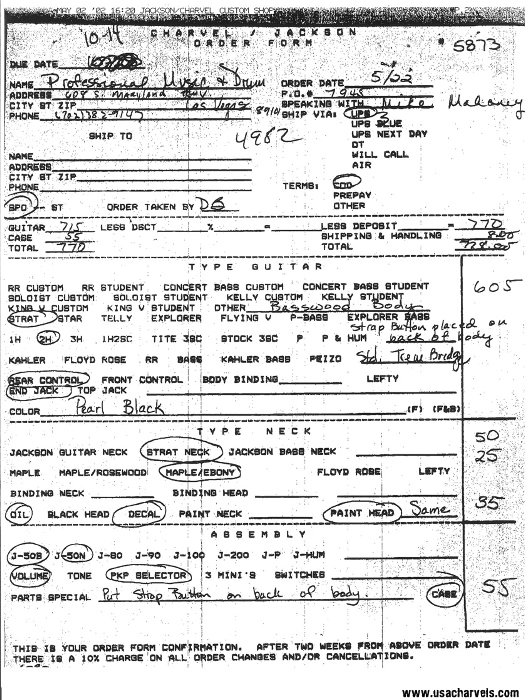 MAY 02 '02 16:20 JACKSON/CHARVEL CUSTOM SHOP
CHARVEL / JACKSON
ORDER FORM
10-14
# 5873
DUE DATE
NAME Professional Music & Drum
ORDER DATE 5/22
ADDRESS 608 S. Maryland Pkwy.
P.O.# 7945
CITY ST ZIP Las Vegas 89101
SPEAKING WITH Mike Mahoney
PHONE (702)382-9147
SHIP VIA: UPS
UPS BLUE
SHIP TO
4982
UPS NEXT DAY
DT
NAME
WILL CALL
ADDRESS
AIR
CITY ST ZIP
PHONE
TERMS: COD
PREPAY
SPO -- ST ORDER TAKEN BY DB
OTHER
GUITAR 715 LESS DSCT. % = LESS DEPOSIT - = 770
CASE 55 SHIPPING & HANDLING 8.00
TOTAL 770 TOTAL 778.00
TYPE GUITAR
605
RR CUSTOM RR STUDENT CONCERT BASS CUSTOM CONCERT BASS STUDENT
SOLOIST CUSTOM SOLOIST STUDENT KELLY CUSTOM KELLY STUDENT
KING V CUSTOM KING V STUDENT OTHER Basswood Body
STRAT STAR TELLY EXPLORER FLYING V P-BASS EXPLORER BASS
Strap Button placed on
back of body
1H 2H 3H 1H2SC TITE 3SC STOCK 3SC P P & HUM
KAHLER FLOYD ROSE RR BASS KAHLER BASS PEIZO Std. Trem Bridge
REAR CONTROL FRONT CONTROL BODY BINDING LEFTY
END JACK TOP JACK
COLOR Pearl Black (F) (F&B)
TYPE NECK
50
JACKSON GUITAR NECK STRAT NECK JACKSON BASS NECK 25
MAPLE MAPLE/ROSEWOOD MAPLE/EBONY FLOYD ROSE LEFTY
BINDING NECK BINDING HEAD
OIL BLACK HEAD DECAL PAINT NECK PAINT HEAD Same 35
ASSEMBLY
J-50B J-50N J-80 J-90 J-100 J-200 J-P J-HUM
VOLUME TONE PKP SELECTOR 3 MINI'S SWITCHES
PARTS SPECIAL Put Strap Button on back of body. CASE 55
THIS IS YOUR ORDER FORM CONFIRMATION. AFTER TWO WEEKS FROM ABOVE ORDER DATE
THERE IS A 10% CHARGE ON ALL ORDER CHANGES AND/OR CANCELLATIONS.
www.usacharvels.com